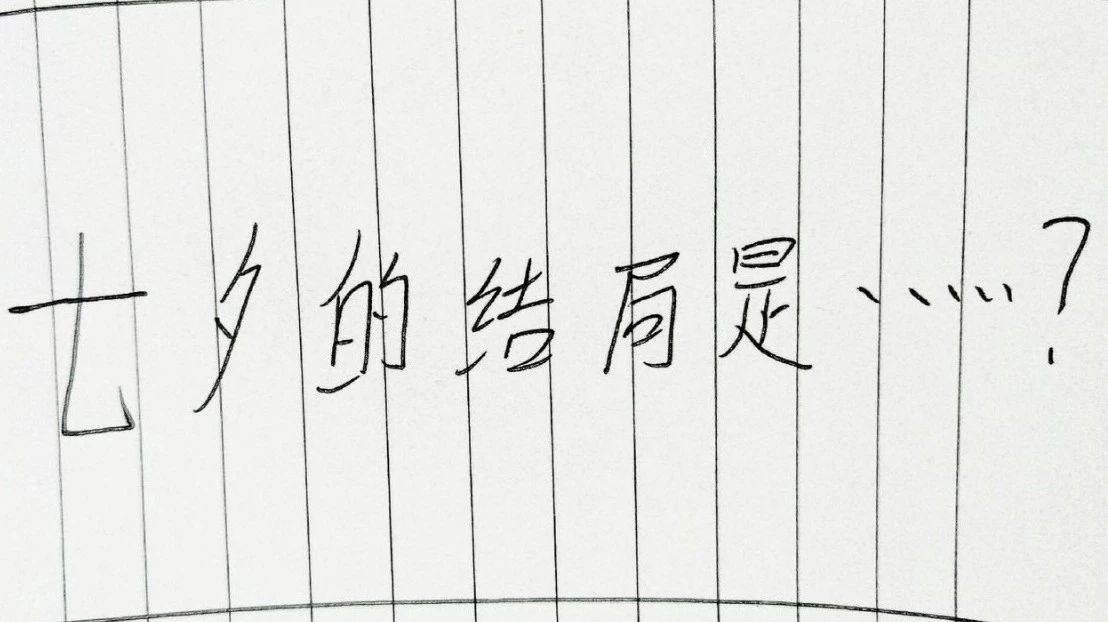 七夕的结局是……?